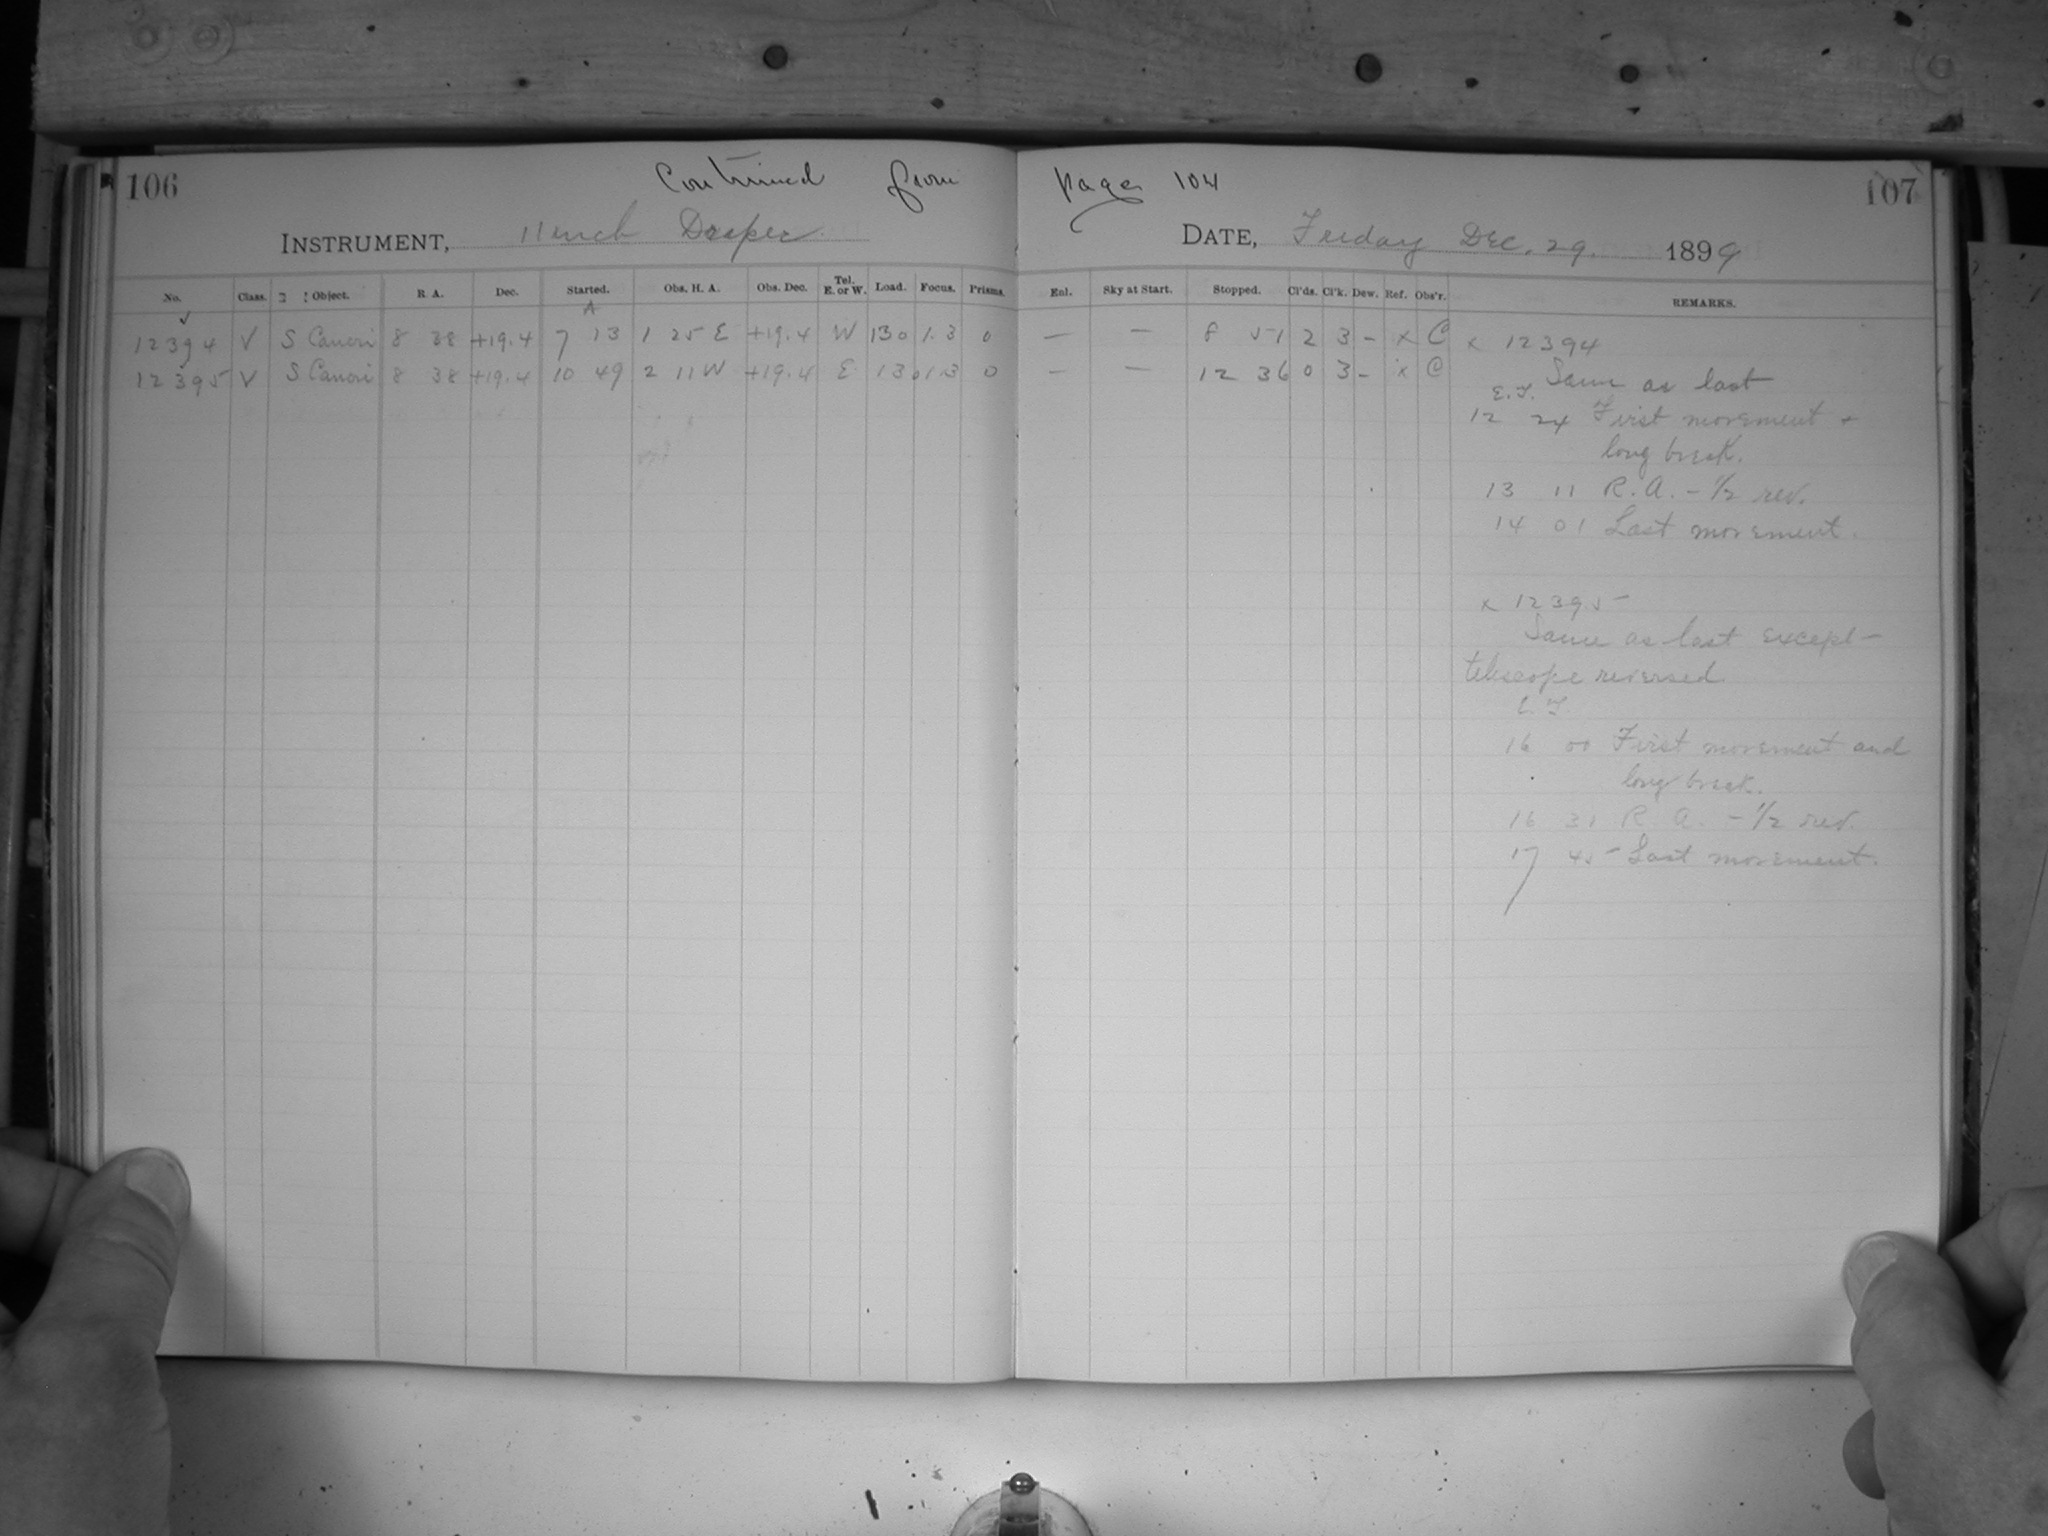 106 Continued from page 104 107
INSTRUMENT, 11 inch Draper DATE, Friday Dec. 29. 1899
No. Class. Object. R. A. Dec. Started. Obs. H. A. Obs. Dec. Tel. E. or W. Load. Focus. Prisms. Enl. Sky at Start. Stopped. Cl'ds. Cl'k. Dew. Ref. Obs'r. REMARKS.
A
12394 V S Cancri 8 38 +19.4 7 13 1 25 E +19.4 W 130 1.3 0 — — 8 51 2 3 - x C x 12394
12395 V S Cancri 8 38 +19.4 10 49 2 11 W +19.4 E 130 1.3 0 — — 12 36 0 3 - x C Same as last
E.T.
12 24 First movement +
long break.
13 11 R.A. - 1/2 rev.
14 01 Last movement.
x 12395
Same as last except
telescope reversed
E.T.
16 00 First movement and
long break.
16 31 R.A. - 1/2 rev.
17 45 Last movement.